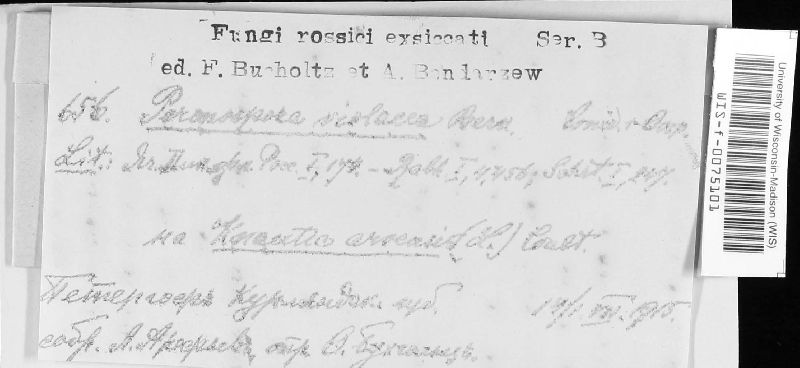 Fungi rossici exsiccati Ser. B
ed. F. Bucholtz et A. Bondarzew
656. Peronospora violacea Berk. Conid. + Oosp.
Lit.: I, 174. – Rabh. I, 4, 456, Schröt. I, 247.
на Knautia arvensis (L.) Coult.
Петергофъ Курляндск. губ. VII. 1915.
собр. А. опр. Ѳ. Бухгольцъ.
University of Wisconsin-Madison (WIS)
WIS-f-0075101